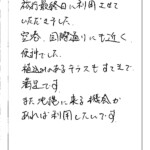 旅行最終日に利用させて
いただきました。
空港、国際通りにも近く、
便利でした。
植込みのあるテラスもすてきで
満足です
また沖縄に来る機会が
あれば利用したいです